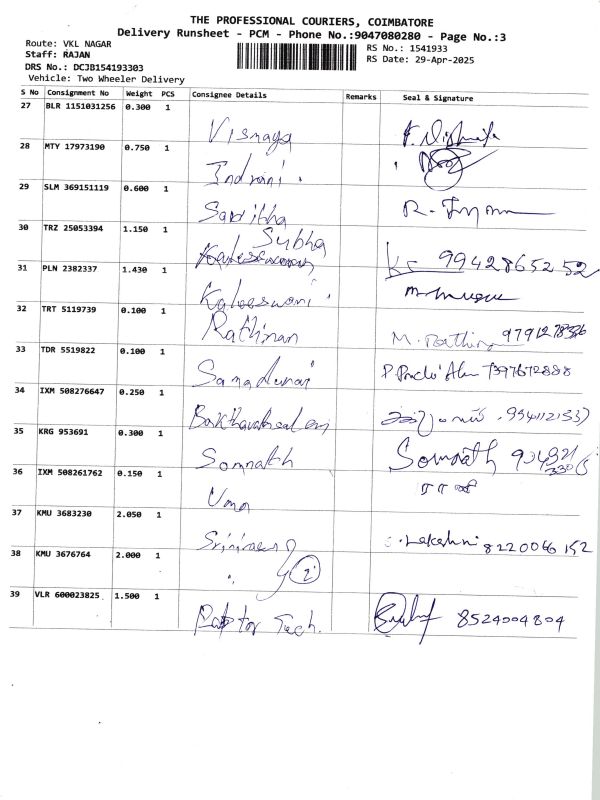 THE PROFESSIONAL COURIERS, COIMBATORE
Delivery Runsheet - PCM - Phone No.:9047080280 - Page No.:3
Route: VKL NAGAR
Staff: RAJAN
DRS No.: DCJB154193303
Vehicle: Two Wheeler Delivery
RS No.: 1541933
RS Date: 29-Apr-2025
S No Consignment No Weight PCS Consignee Details Remarks Seal & Signature
27 BLR 1151031256 0.300 1 Vismaya
28 MTY 17973190 0.750 1 Indrani.
29 SLM 369151119 0.600 1 Saritha R.
30 TRZ 25053394 1.150 1 Subha 9942865252
31 PLN 2382337 1.430 1 Kaleeswari.
32 TRT 5119739 0.100 1 Rathinan M.
33 TDR 5519822 0.100 1
34 IXM 508276647 0.250 1
35 KRG 953691 0.300 1 Somnath Somnath
36 IXM 508261762 0.150 1 Uma
37 KMU 3683230 2.050 1 8220066152
38 KMU 3676764 2.000 1 2
39 VLR 600023825 1.500 1 Raptor Tech. 8524004804